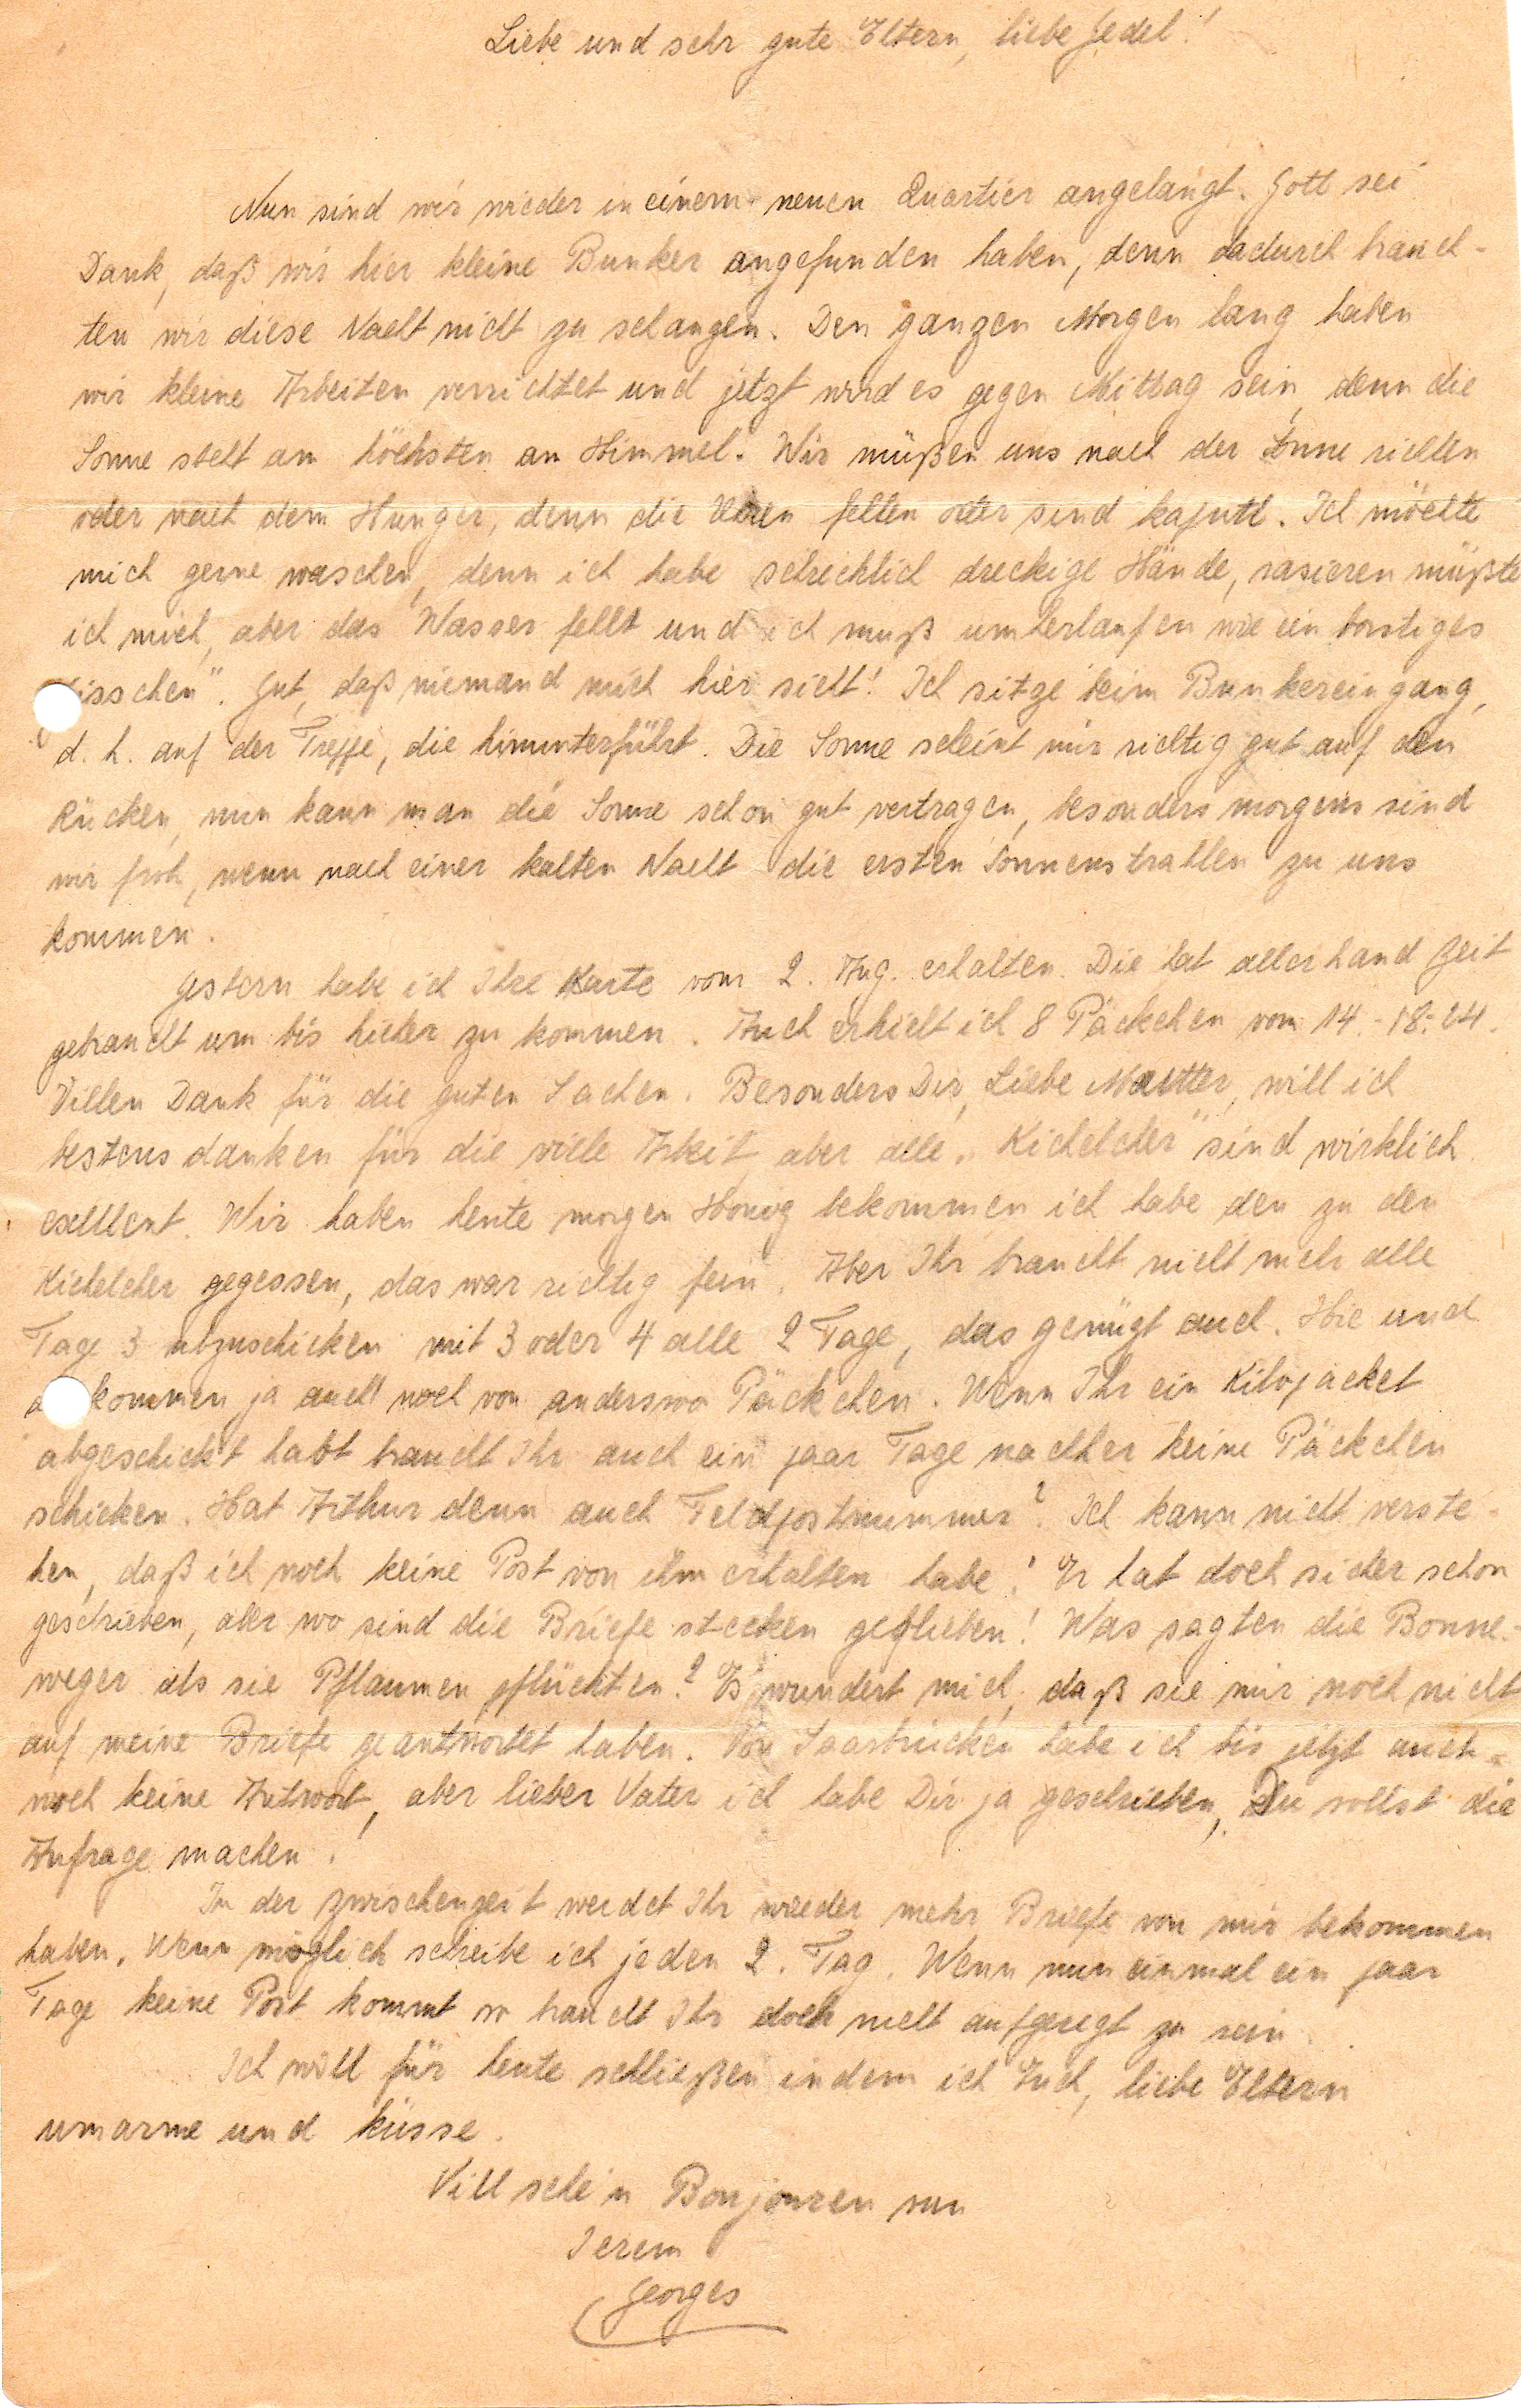 Liebe und sehr gute Eltern, liebe Jedel!
Nun sind wir wieder in einem neuen Quartier angelangt. Gott sei
Dank, daß wir hier kleine Bunker angefunden haben, denn dadurch brauch-
ten wir diese Nacht nicht zu schangen. Den ganzen Morgen lang haben
wir kleine Arbeiten verrichtet und jetzt wird es gegen Mittag sein, denn die
Sonne steht am höchsten an Himmel. Wir müßen uns nach der Sonne richten
oder nach dem Hunger, denn die Uhren fehlen oder sind kaputt. Ich möchte
mich gerne waschen, denn ich habe schrecklich dreckige Hände, rasieren müßte
ich mich, aber das Wasser fehlt und ich muß umherlaufen wie ein borstiges
isschen". Gut, daß niemand mich hier sieht! Ich sitze beim Bunkereingang,
d. h. auf der Treppe, die hinunterführt. Die Sonne scheint mir richtig gut auf den
Rücken, nun kann man die Sonne schon gut vertragen, besonders morgens sind
wir froh, wenn nach einer kalten Nacht die ersten Sonnenstrahlen zu uns
kommen.
Gestern habe ich Ihre Karte vom 2. Aug. erhalten. Die hat allerhand Zeit
gebraucht um bis hieher zu kommen. Auch erhielt ich 8 Päckchen vom 14.-18.-24.
Villen Dank für die guten Sachen. Besonders Dir, Liebe Mutter, will ich
bestens danken für die ville Arbeit aber alle „Kichelcher" sind wirklich
exellent. Wir haben heute morgen Honig bekommen ich habe den zu den
Kichelcher gegessen, das war richtig fein. Aber Ihr braucht nicht mehr alle
Tage 3 abzuschicken mit 3 oder 4 alle 2 Tage, das genügt auch. Hie und
kommen ja auch noch von anderswo Päckchen. Wenn Ihr ein Kilopacket
abgeschickt habt braucht Ihr auch ein paar Tage nachher keine Päckchen
schicken. Hat Arthur denn auch Feldpostnummer? Ich kann nicht verste-
hen, daß ich noch keine Post von ihm erhalten habe! Er hat doch sicher schon
geschrieben, aber wo sind die Briefe stecken geblieben! Was sagten die Bonne-
weger als sie Pflaumen pflückten? Es wundert mich, daß sie mir noch nicht
auf meine Briefe geantwortet haben. Von Saarbrücken habe ich bis jetzt auch
noch keine Antwort, aber lieber Vater ich habe Dir ja geschrieben, Du sollst die
Anfrage machen!
In der Zwischenzeit werdet Ihr wieder mehr Briefe von mir bekommen
haben. Wenn möglich schreibe ich jeden 2. Tag. Wenn nun einmal ein paar
Tage keine Post kommt so braucht Ihr doch nicht aufgeregt zu sein.
Ich will für heute schließen indem ich Euch, liebe Eltern
umarme und küsse.
Vill schéin Bonjouren vun
Ierem
Georges